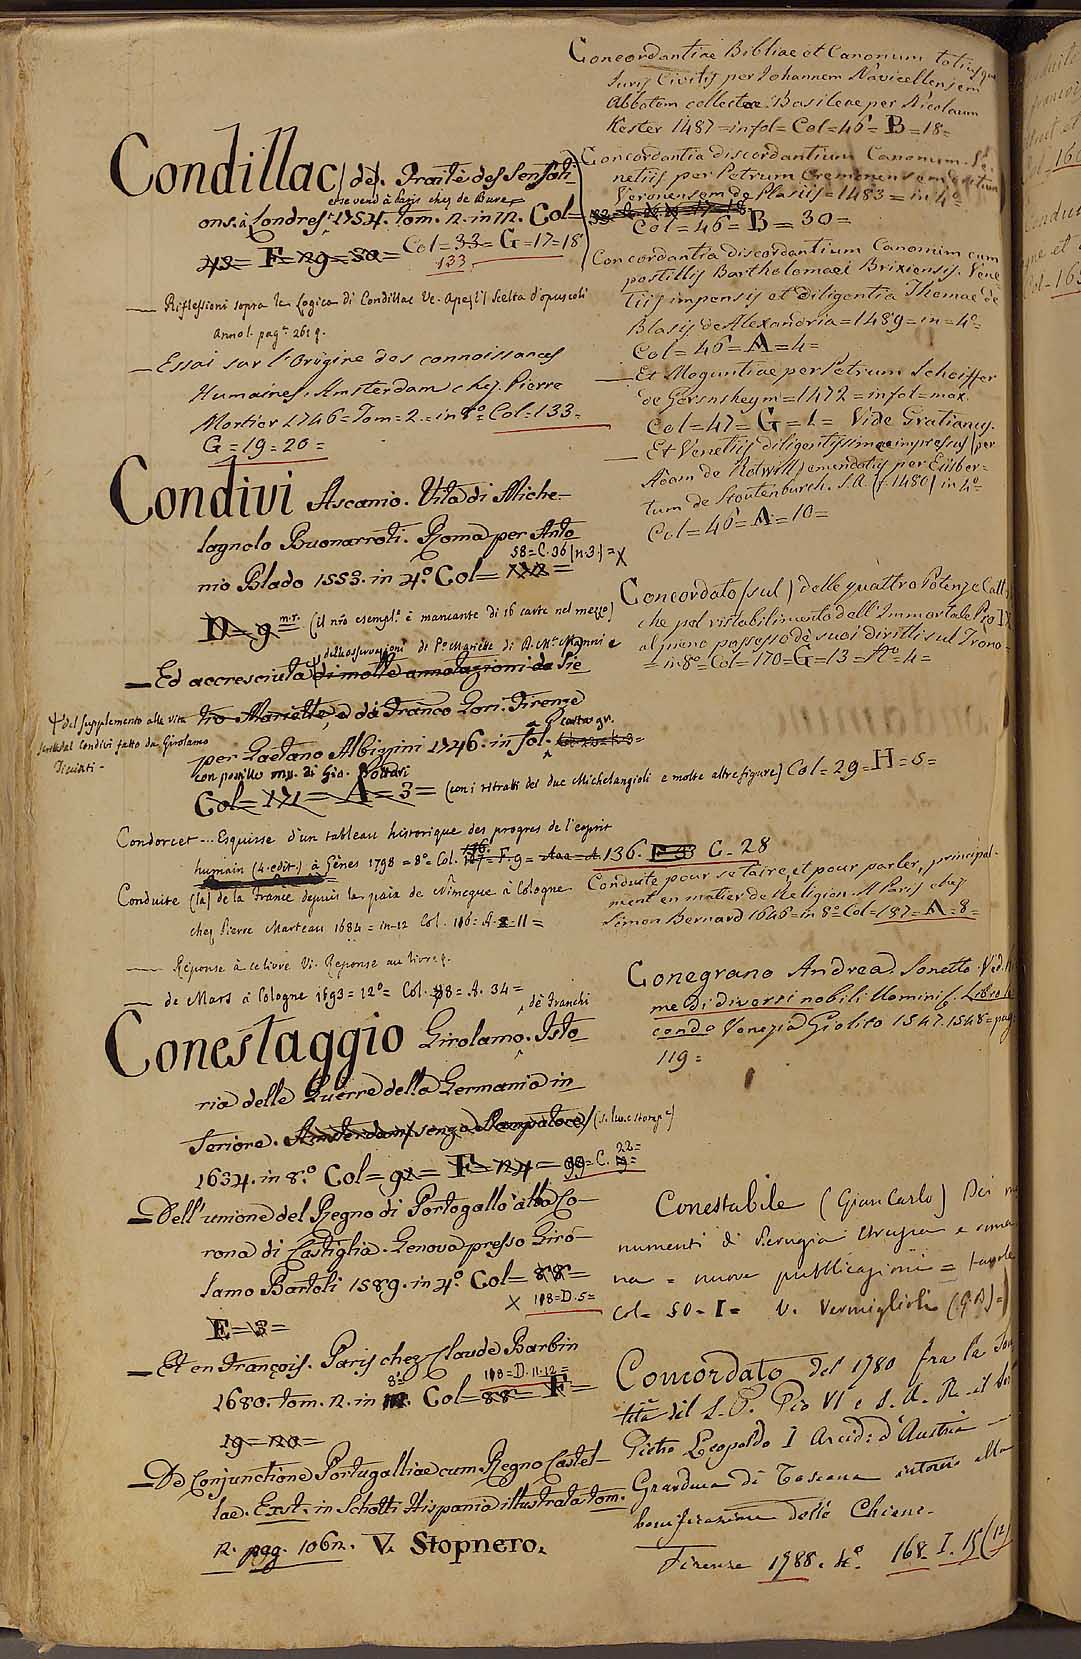 Condillac (de). Traité des Sensati-
et se vend à Paris chez de Bure
ons. à Londres. 1754. Tom. 2. in 12. Col=
43= F= 29= 30= Col=33= G=17=18
133
— Riflessioni sopra la Logica di Condillac Ve. Ape (l') Scelta d'opuscoli
Anno I. pag.
— Essai sur l'Origine des connoissances
Humaines. Amsterdam chez Pierre
Mortier 1746= Tom=2.= in 8º Col=133=
G=19=20=
Condivi Ascanio. Vita di Miche-
lagnolo Buonarroti. Roma per Anto
58=C.36 (n.3.)= X
nio Blado 1553. in 4º. Col=
D= 9 (il nro esempl.e è mancante di 16 carte nel mezzo)
dell'osservazioni di Po Mariette di D. Ma. Manni e
— Ed accresciuta di molte annotazioni da Pie
tro Mariette, e da Franco Gori. Firenze
† del supplemento alla vita
scritta dal Condivi fatto da Girolamo
Ticciati-
per Gaetano Albizzini 1746. in fol. Carta gr.
con postille mss. di Gio. Bottari
Col= 171= A= 3= (con i ritratti dei due Michelangioli e molte altre figure) Col=29=H=5=
Condorcet... Esquisse d'un tableau historique des progres de l'esprit
humain (4. edit.) à Gênes 1798 = 8º= Col. F. 9= 136. C. 28
Conduite (la) de la France depuis la paix de Nimegue à Cologne
chez Pierre Marteau 1684= in-12 Col. 106= A. 11=
— Réponse à ce livre Vi. Reponse au livre.
— de Mars à Cologne 1693= 12º= Col. 98= A. 34=
Conestaggio Girolamo. de Franchi Isto
ria delle Guerre della Germania in
feriore. Amsterdam senza Stampatore
1634. in 8º. Col=92= F= 24= 99= C. 22=
— Dell'unione del Regno di Portogallo alla Co-
rona di Castiglia. Genova presso Giro-
lamo Bartoli 1589. in 4º. Col= 88=
X 108=D.5=
E= 3=
— Et en François. Paris chez Claude Barbin
8º 108=D.11.12=
1680. tom. 2. in 12. Col= 88= F=
19=20=
— De Conjunctione Portugalliae cum Regno Castel-
lae. Exst. in Schotti Hispania illustrata tom.
2. pag. 1062. V. Stopnero.
Concordantiae Bibliae et Canonum totiusque
Juris Civilis per Johannem Nivicellensem
Abbatem collectae. Basileae per Nicolaum
Kesler 1487= in fol= Col=46= B=18=
Concordantia discordantium Canonum. Ve
netiis per Petrum Cremonensem
Veronensem de Plasiis= 1483= in 4º=
Col=46= B=30=
Concordantia discordantium Canonum cum
postillis Bartholomaei Brixiensis. Vene
tiis impensis et diligentia Thomae de
Blasiis de Alexandria= 1489= in= 4º=
Col= 46= A=4=
— Et Moguntiae per Petrum Schoiffer
de Gernsheym= 1472= in fol= max.
Col=47= G=1= Vide Gratianus.
— Et Venetiis diligentissime impressus per
Adam de Rotwill) emendatus per Eüsber=
tum de Stoutenburch. S.A. (f. 1480) in 4º=
Col=46= A=10=
Concordato (sul) delle quattro Potenze Catt.
che pel ristabilimento dell'Immortale Pio IX
al pieno possesso de suoi diritti sul Trono=
= in 8º= Col=170=G=13= Nº=4=
Conduite pour se taire, et pour parler, principal-
ment en matier de Religion. A Paris chez
Simon Bernard 1646= in 8º= Col=187= A=8=
Conegrano Andrea. Sonetto. Ved.
me di diversi nobili Uomini &. Libro Se
condo Venezia Giolito 1547.1548= pag.
119=
Conestabile (Gian Carlo) Dei mo
numenti di Perugia Etrusca e roma
na = nuove pubblicazioni = tavole
Col= 50= I= V. Vermiglioli (G.B)=
Concordato del 1780 fra la San
tità del S. P. Pio VI e S. A. R. il
Pietro Leopoldo I Arcid: d'Austria
Granduca di Toscana intorno alla
bonificazione delle Chiane.
Firenze 1788. 4º. 168. I. 15 (12)